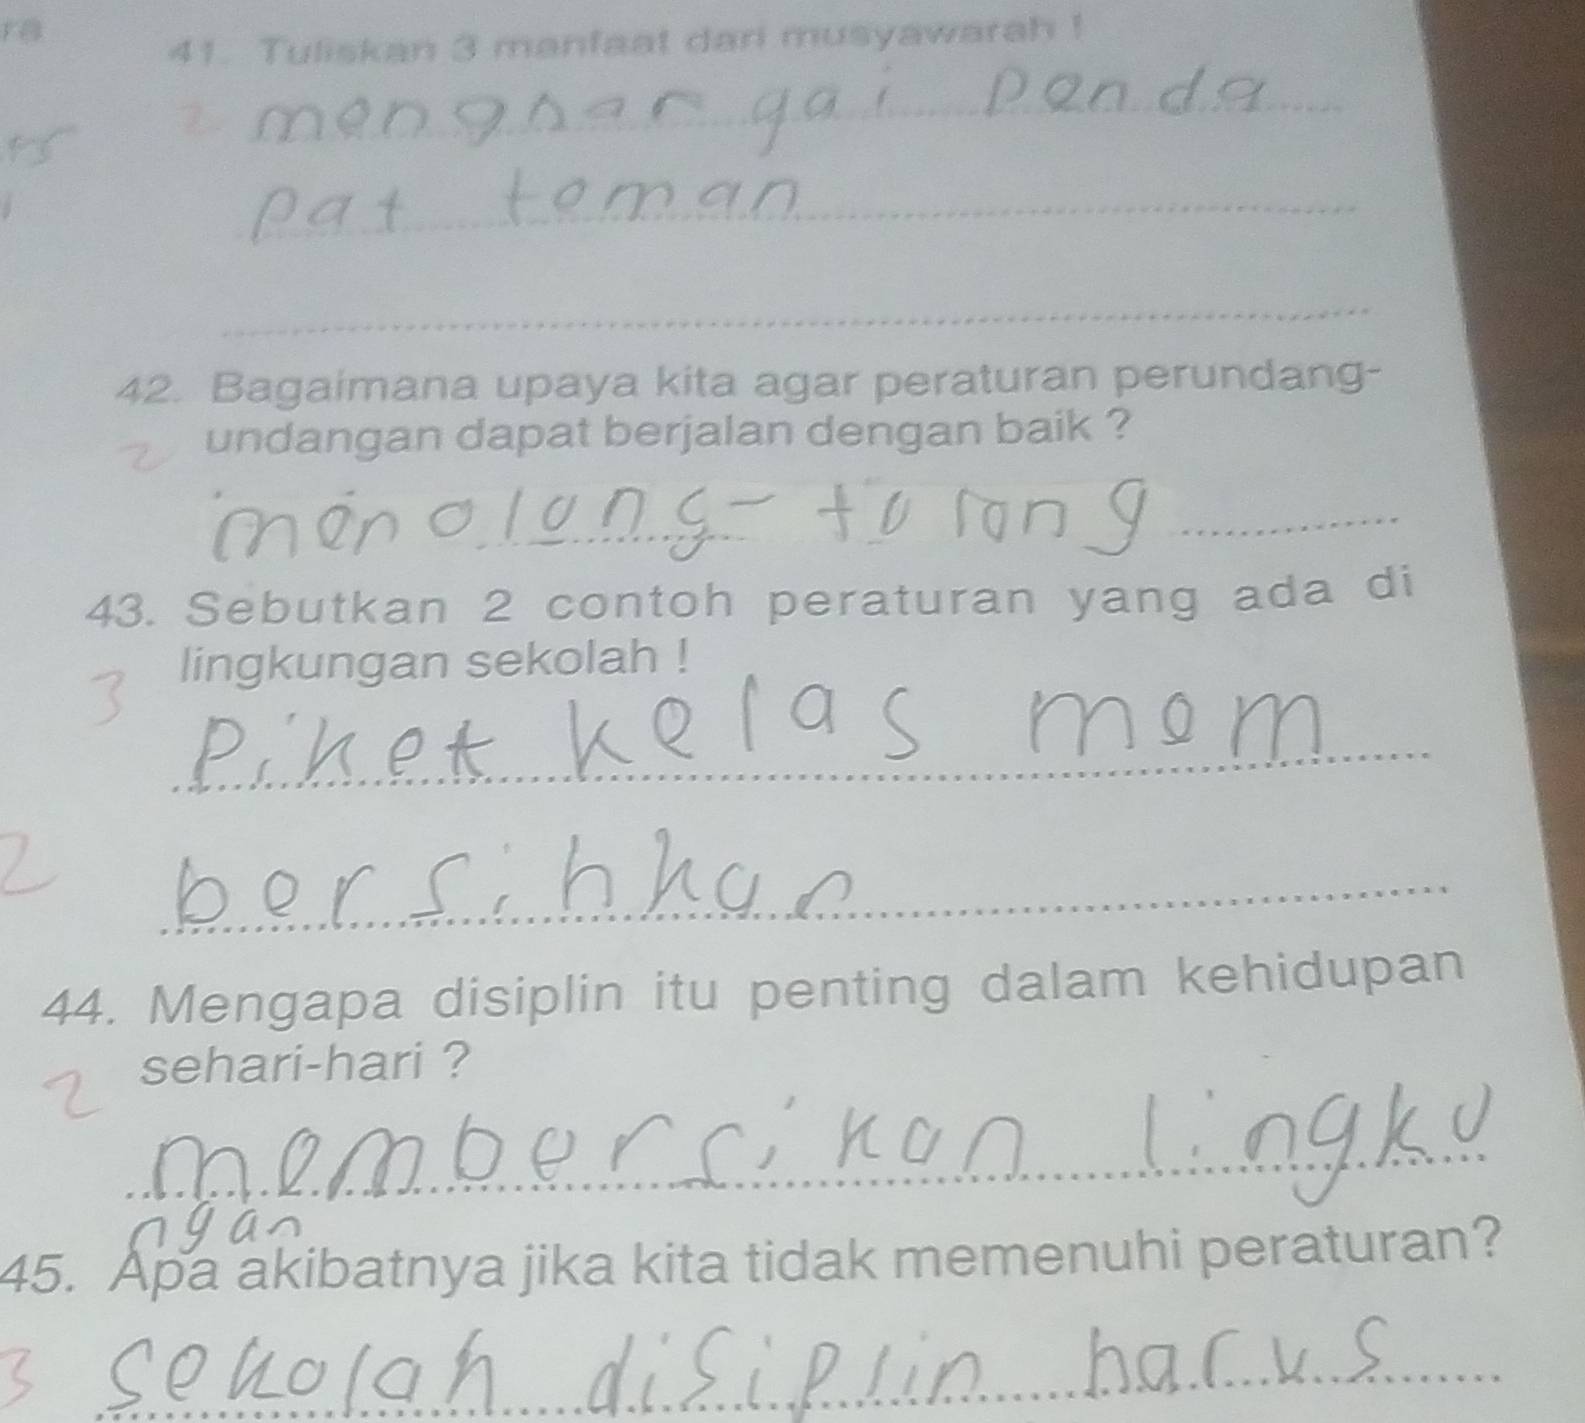 ra
41. Tuliskan 3 manfaat dari musyawarah !
2 menghargai penda
pat teman
42. Bagaimana upaya kita agar peraturan perundang-
2 undangan dapat berjalan dengan baik ?
menolong-tolong
43. Sebutkan 2 contoh peraturan yang ada di
3 lingkungan sekolah !
Piket kelas mem
2 bersihkan
44. Mengapa disiplin itu penting dalam kehidupan
2 sehari-hari ?
membersikan lingku
ngan
45. Apa akibatnya jika kita tidak memenuhi peraturan?
3 sekolah disiplin harus